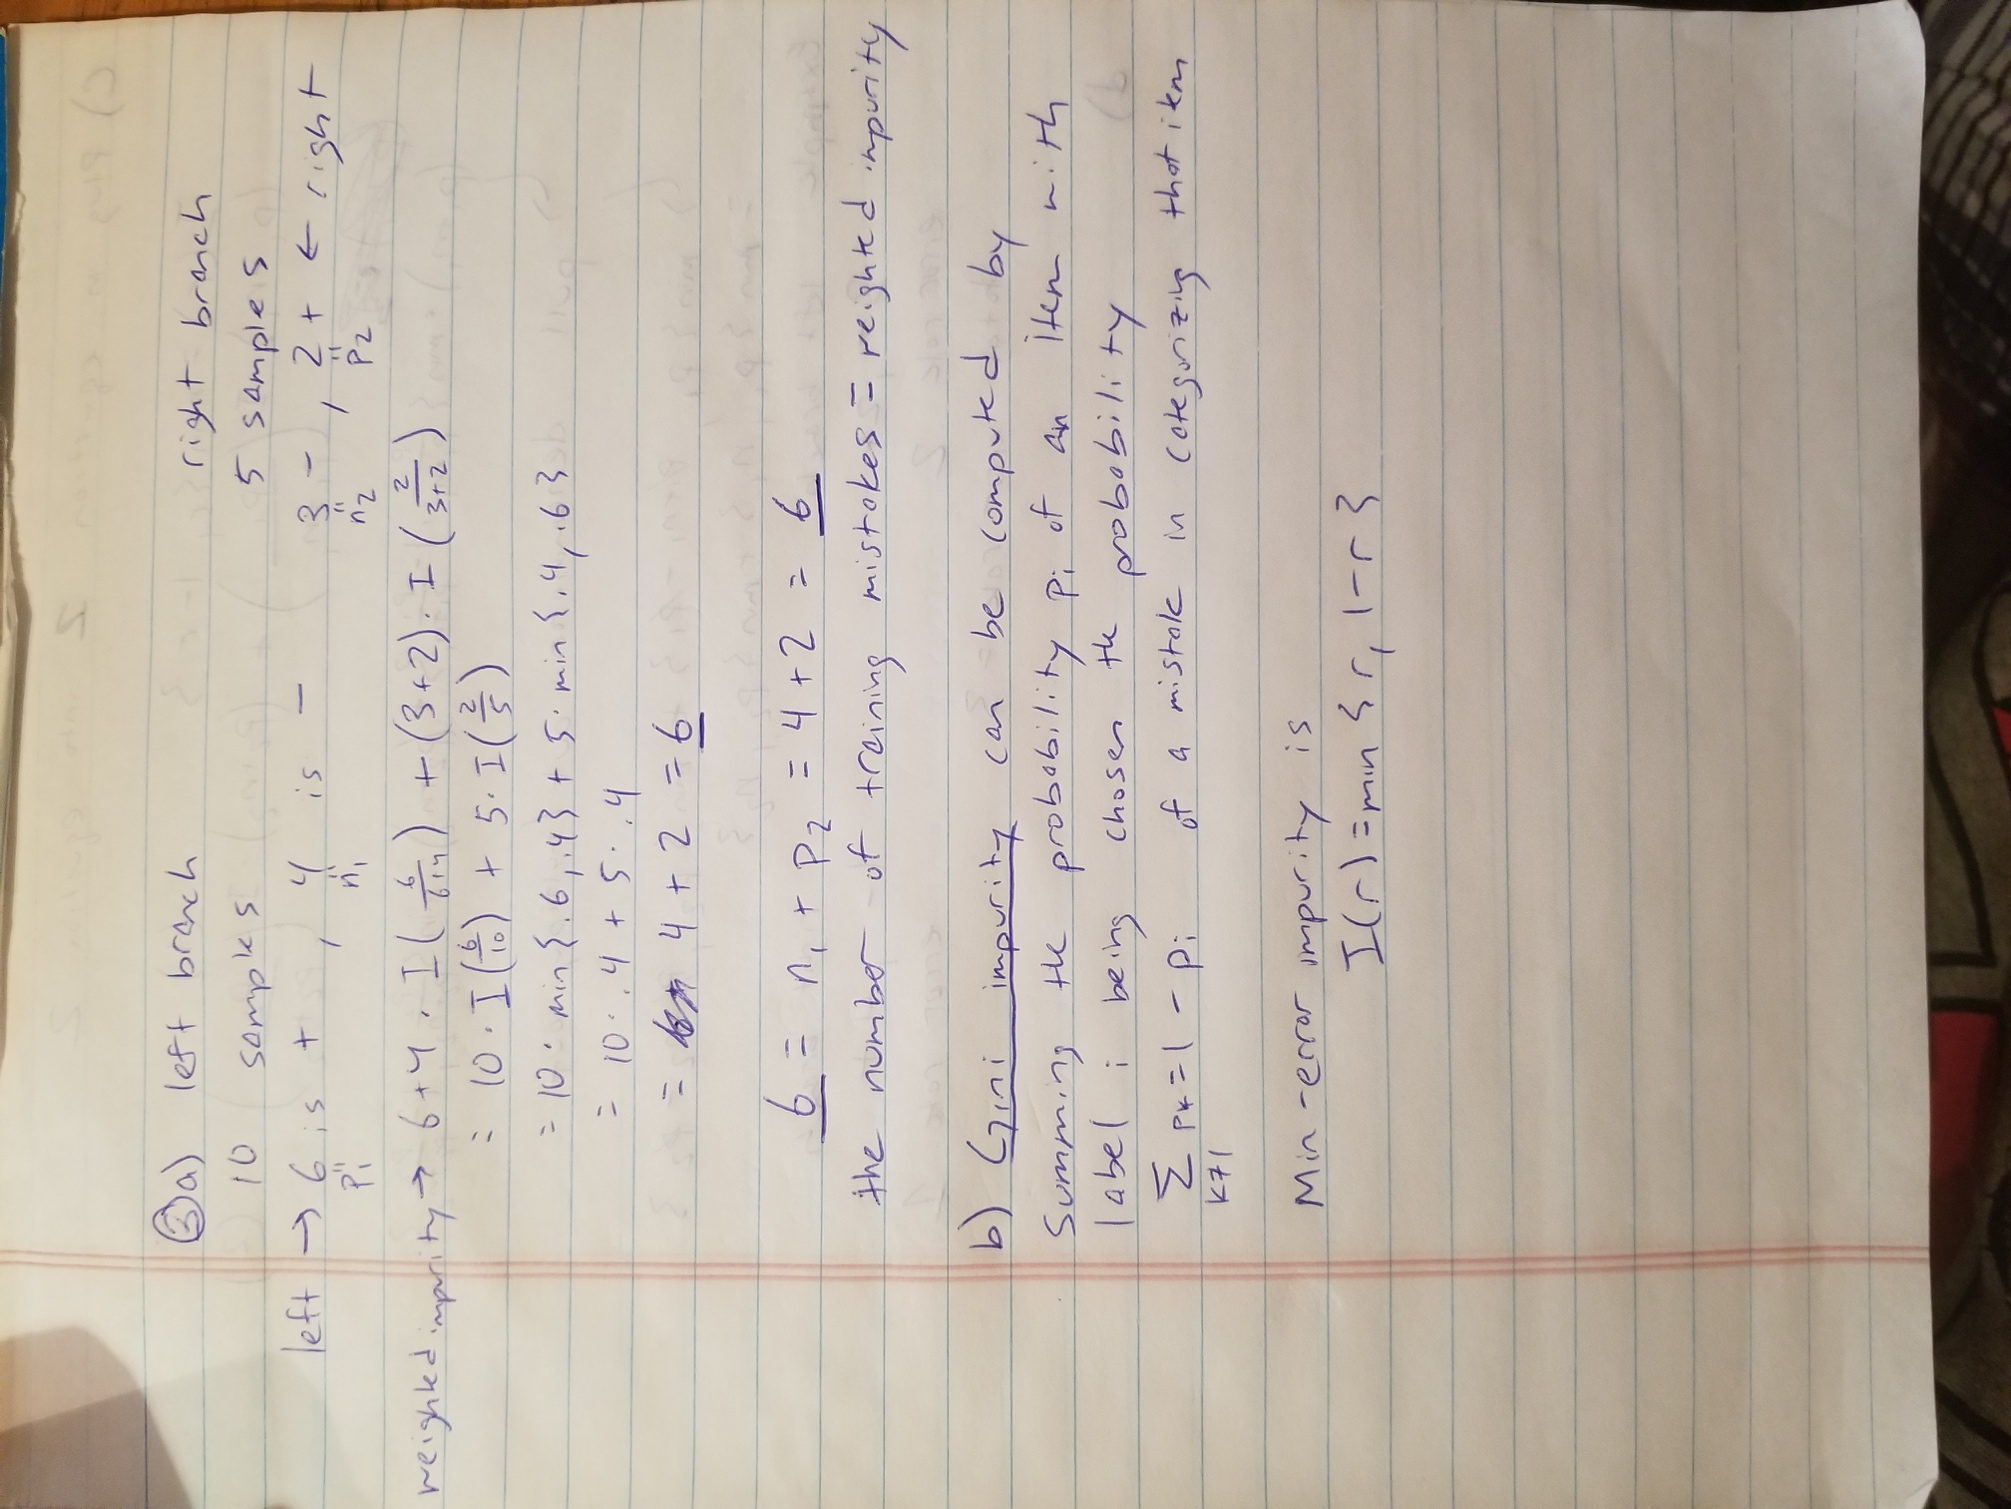 ③a) left branch right branch
10 samples 5 samples
left → 6 is + , 4 is − 3 − , 2 + ← right
p₁ n₁ n₂ p₂
weighted impurity → 6+4 · I(6/6+4) + (3+2) · I(2/3+2)
= 10 · I(6/10) + 5 · I(2/5)
= 10 · min{.6, .4} + 5 · min{.4, .6}
= 10 · .4 + 5 · .4
= 4 + 2 = 6
6 = n₁ + p₂ = 4 + 2 = 6
the number of training mistakes = weighted impurity
b) Gini impurity can be computed by
Summing the probability pᵢ of an item with
label i being chosen the probability
∑ pₖ = 1 − pᵢ of a mistake in categorizing that item
k≠1
Min-error impurity is
I(r) = min { r, 1−r }